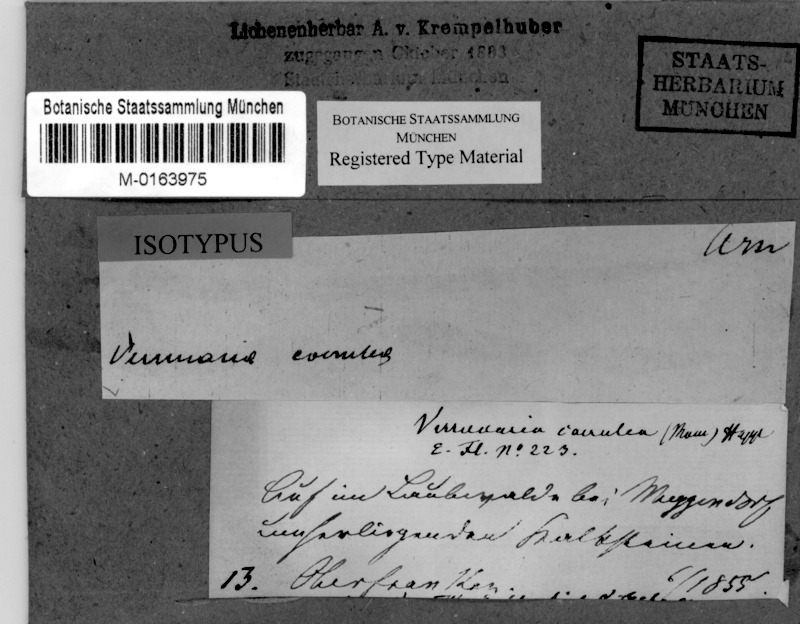 Lichenenherbar A. v. Krempelhuber
zugegangen Oktober 1883
Staatsherbarium München
STAATS-
HERBARIUM
MÜNCHEN
Botanische Staatssammlung München
M-0163975
BOTANISCHE STAATSSAMMLUNG
MÜNCHEN
Registered Type Material
ISOTYPUS
Arn
Verrucaria coerulea
Verrucaria caerulea (Ram.) Hepp
E. Fl. No 223.
Auf im Laubwalde bei Weggendorf
umherliegenden Kalksteinen.
13. Oberfranken. 6/1855.